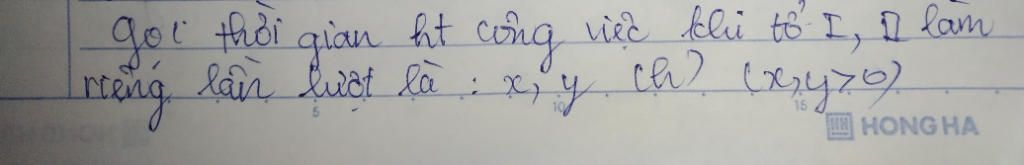 gọi thời gian ht công việc khi tổ I, II làm
riêng lần lượt là : x, y (h) (x,y>0)
5 10 15
HONG HA